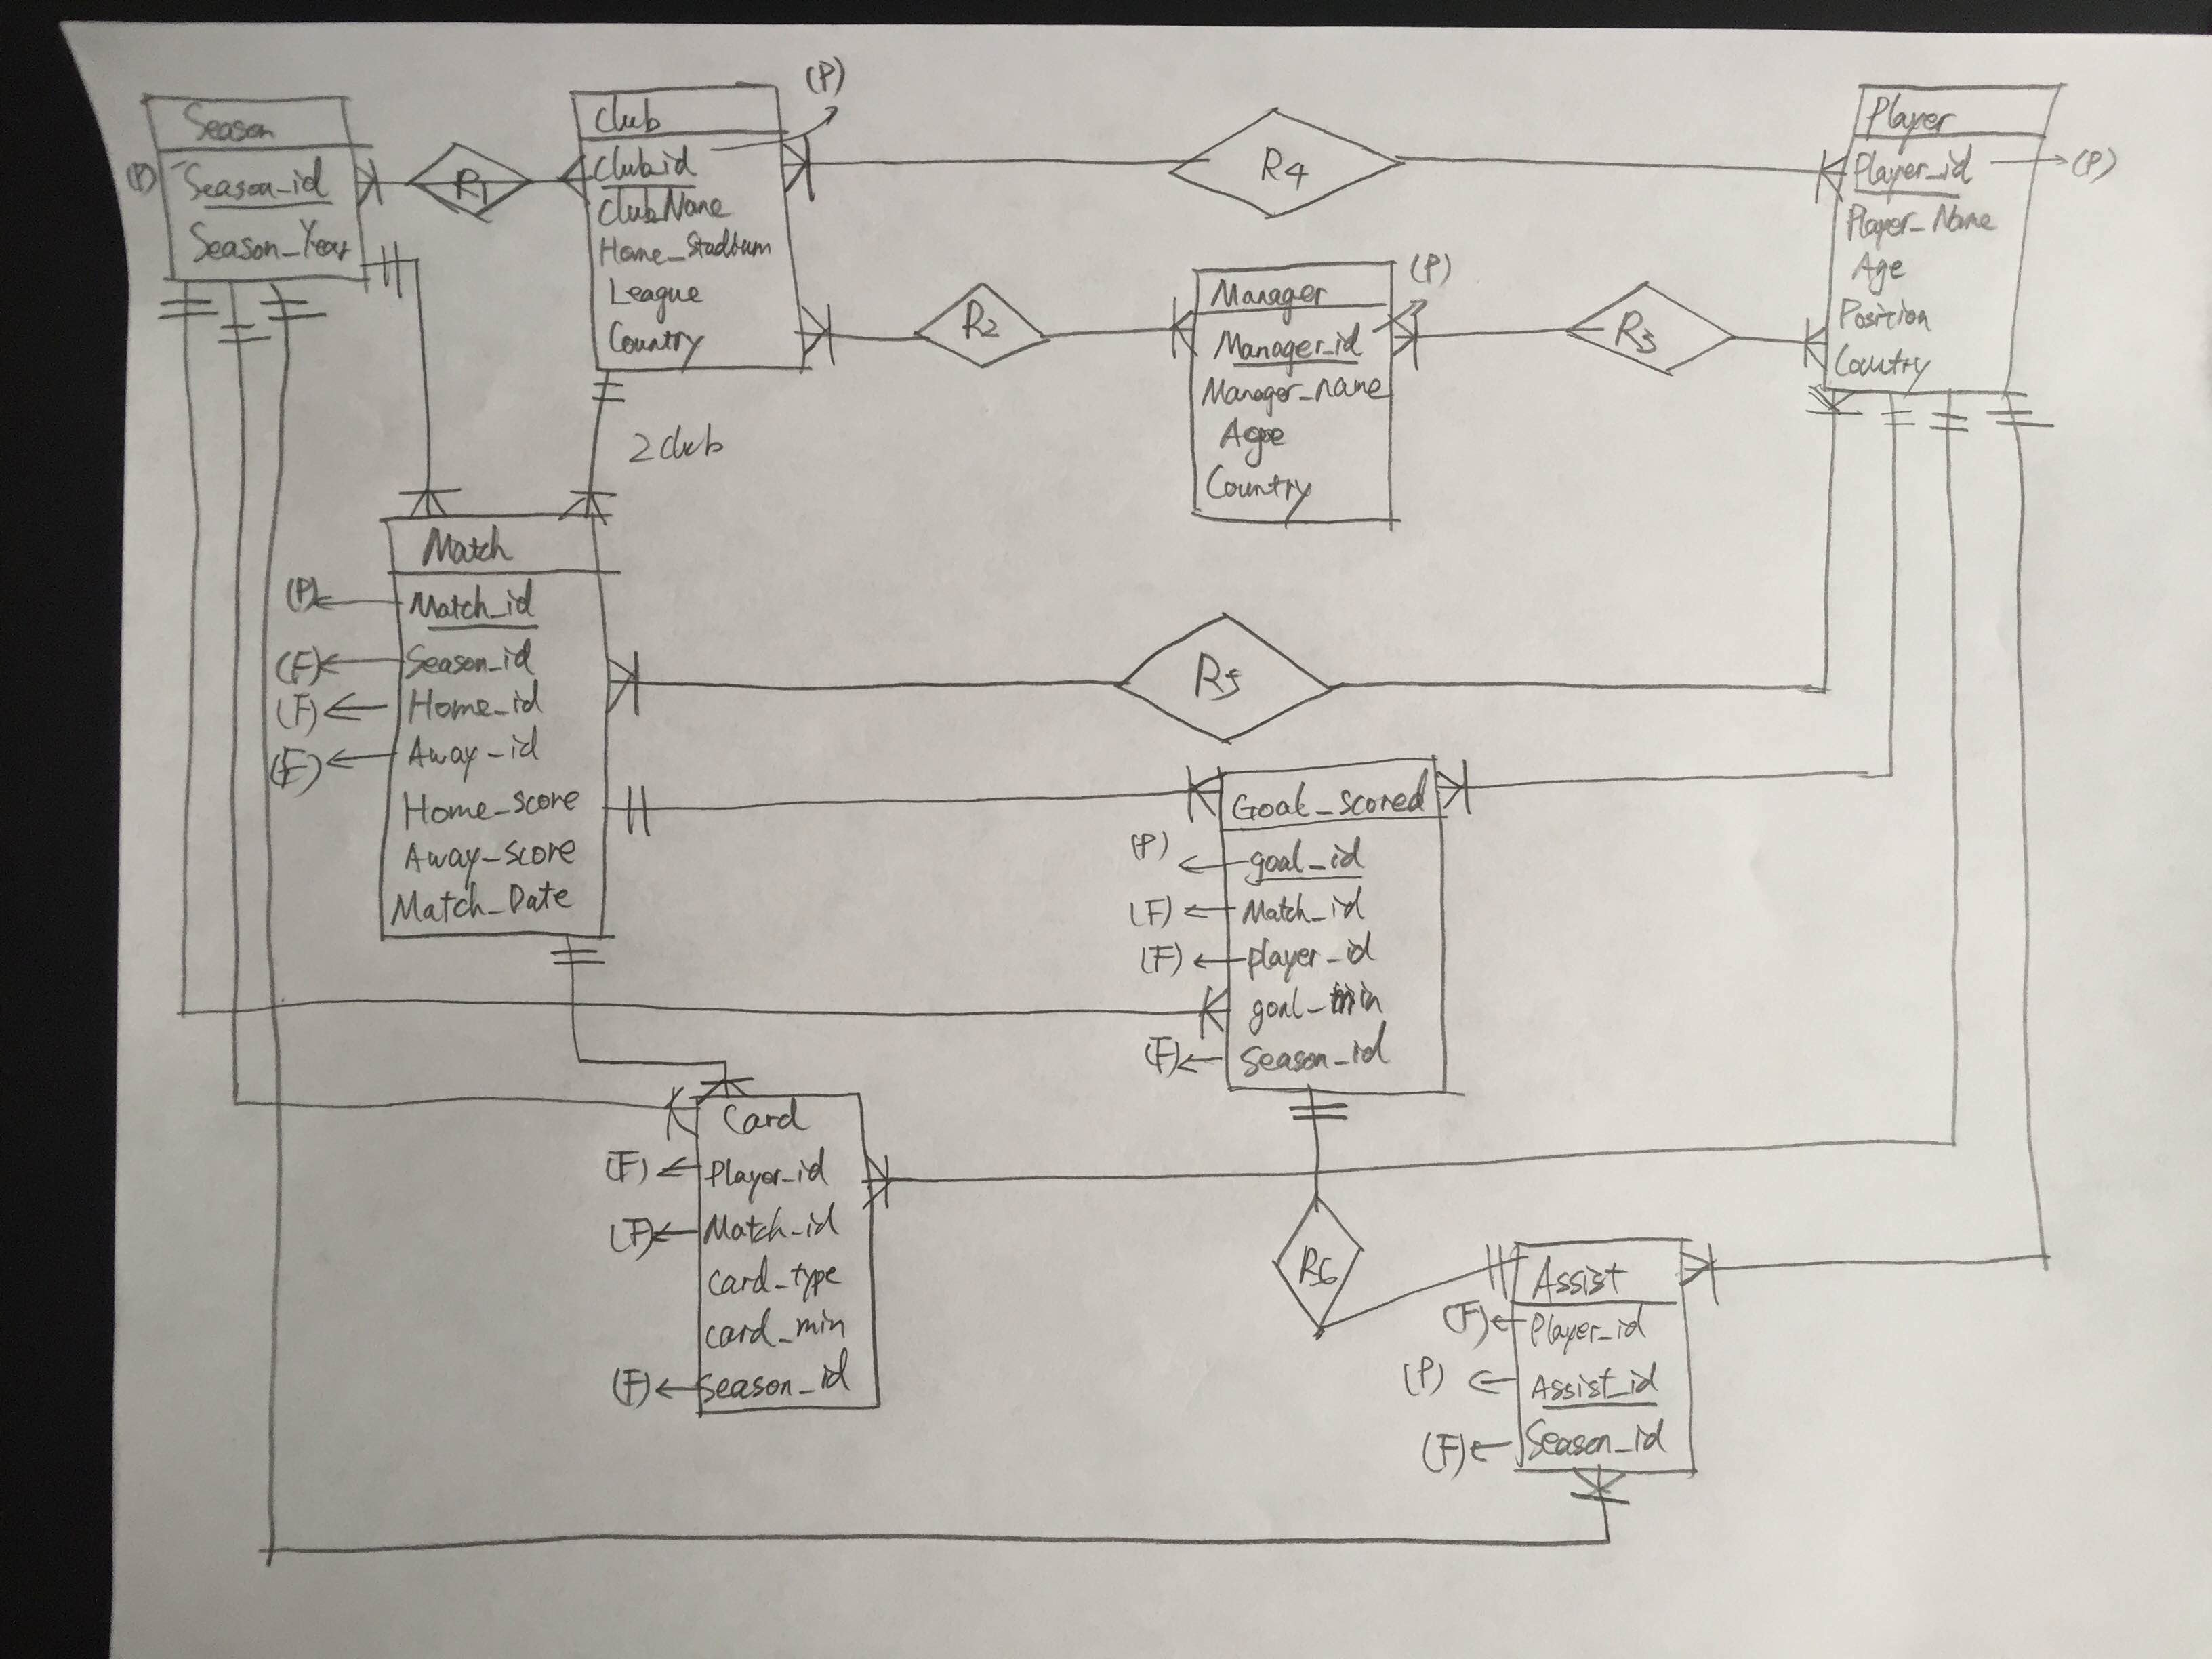 Season
(P) Season_id
Season_Year
R1
(P)
Club
Club_id
Club_Name
Home_Stadium
League
Country
2 club
R4
R2
(P)
Manager
Manager_id
Manager_name
Age
Country
R3
Player
Player_id (P)
Player_Name
Age
Position
Country
Match
(P) Match_id
(F) Season_id
(F) Home_id
(F) Away_id
Home_score
Away_score
Match_Date
R5
Goal_scored
(P) goal_id
(F) Match_id
(F) player_id
goal_min
(F) Season_id
Card
(F) Player_id
(F) Match_id
card_type
card_min
(F) Season_id
R6
Assist
(F) Player_id
(P) Assist_id
(F) Season_id